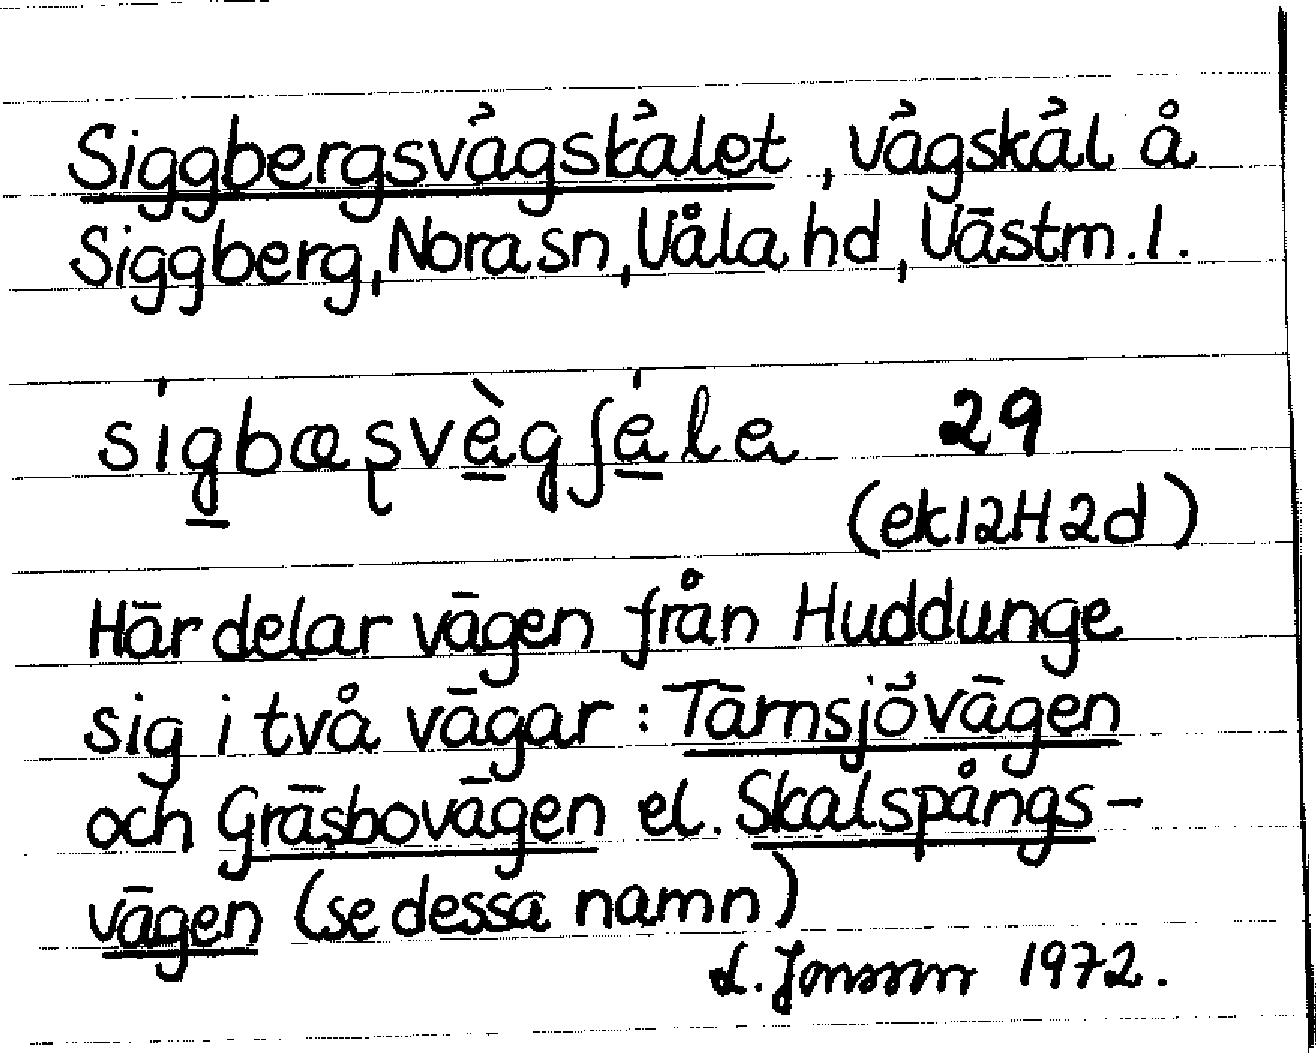 Siggbergsvägskälet, vägskäl å
Siggberg, Nora sn, Våla hd, Västm. l.
sígbœșvèg̱ʃéla 29
(ek 12H2d)
Här delar vägen från Huddunge
sig i två vägar: Tärnsjövägen
och Gräsbovägen el. Skalspångs-
vägen (se dessa namn)
L. Jonsson 1972.